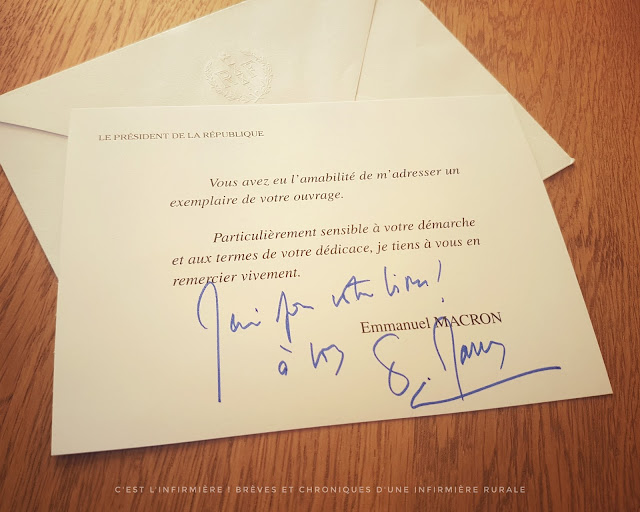 LE PRÉSIDENT DE LA RÉPUBLIQUE
Vous avez eu l'amabilité de m'adresser un
exemplaire de votre ouvrage.
Particulièrement sensible à votre démarche
et aux termes de votre dédicace, je tiens à vous en
remercier vivement.
Merci pour votre livre !
Emmanuel MACRON
à vous
E. Macron
C'EST L'INFIRMIÈRE ! BRÈVES ET CHRONIQUES D'UNE INFIRMIÈRE RURALE